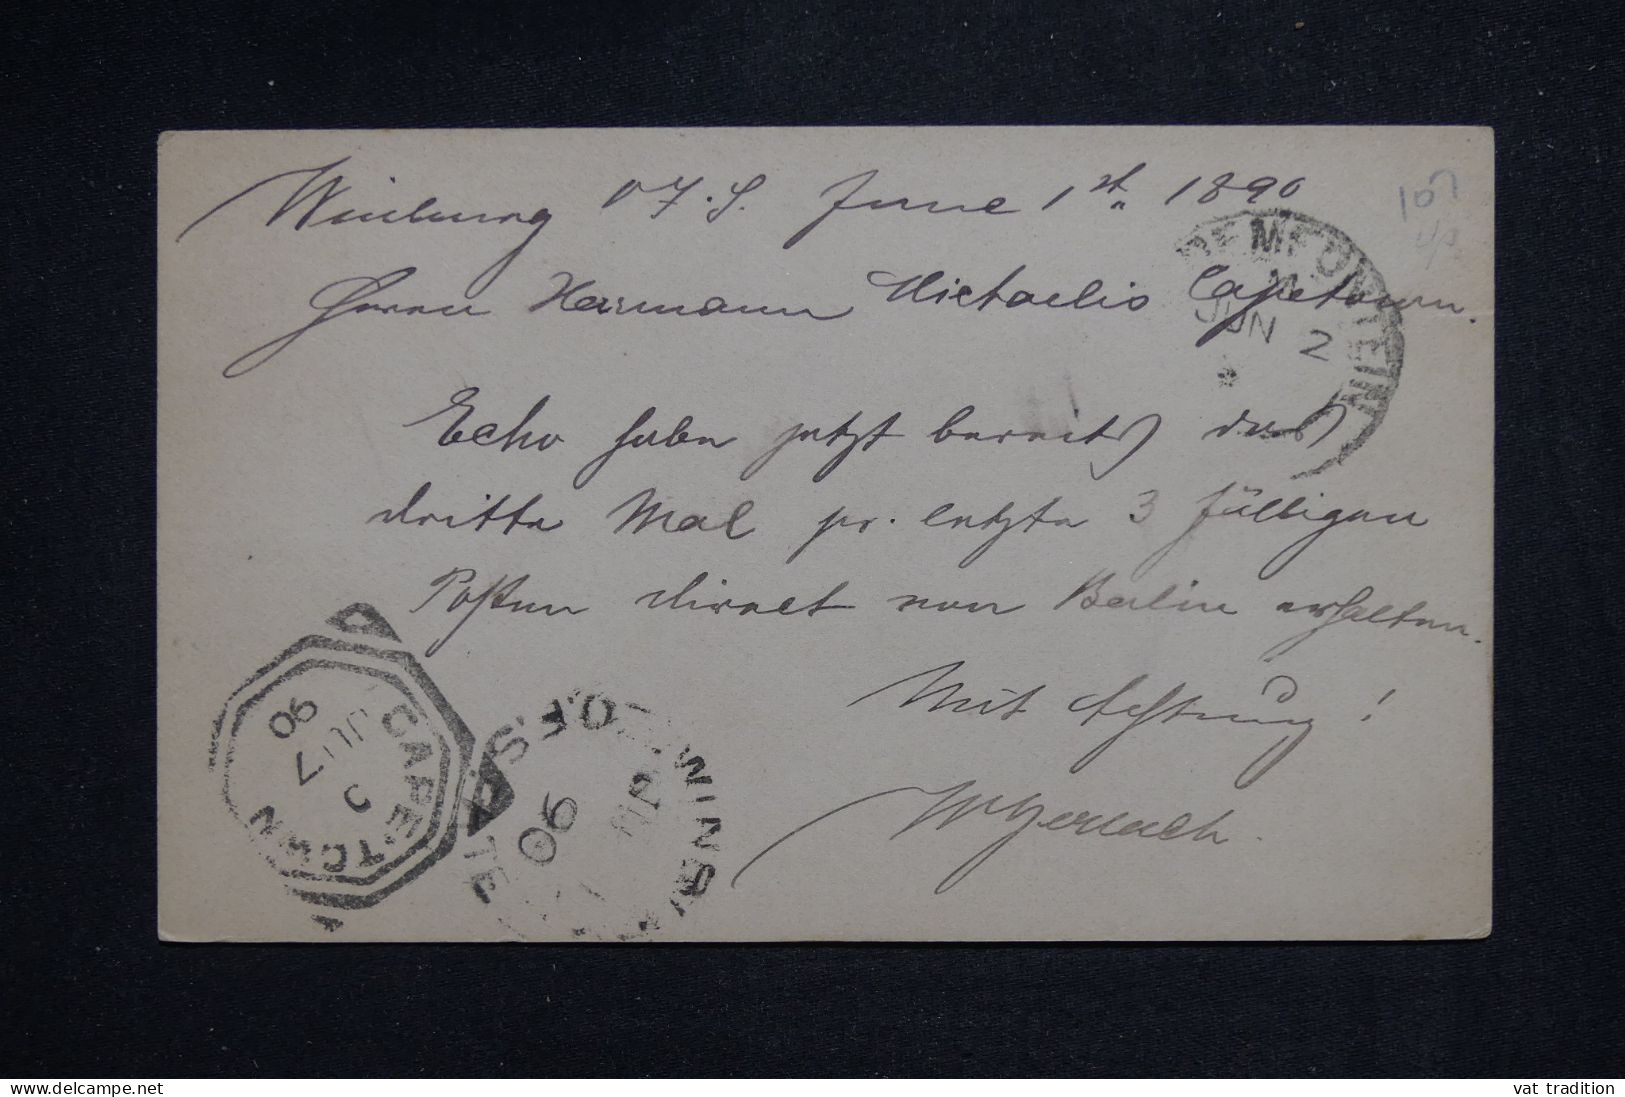 Winburg O.F.S. June 1st. 1890
107
Herrn Hermann Michaelis Capetown.
BLOEMFONTEIN
JUN 2
Echo habe jetzt bereits das
dritte Mal pr. letzte 3 fälligen
Posten direct von Berlin erhalten.
Mit Achtung!
Gerlach.
CAPE TOWN
JU 7
90
WINBURG
O.F. STATE
90
vat tradition
www.delcampe.net